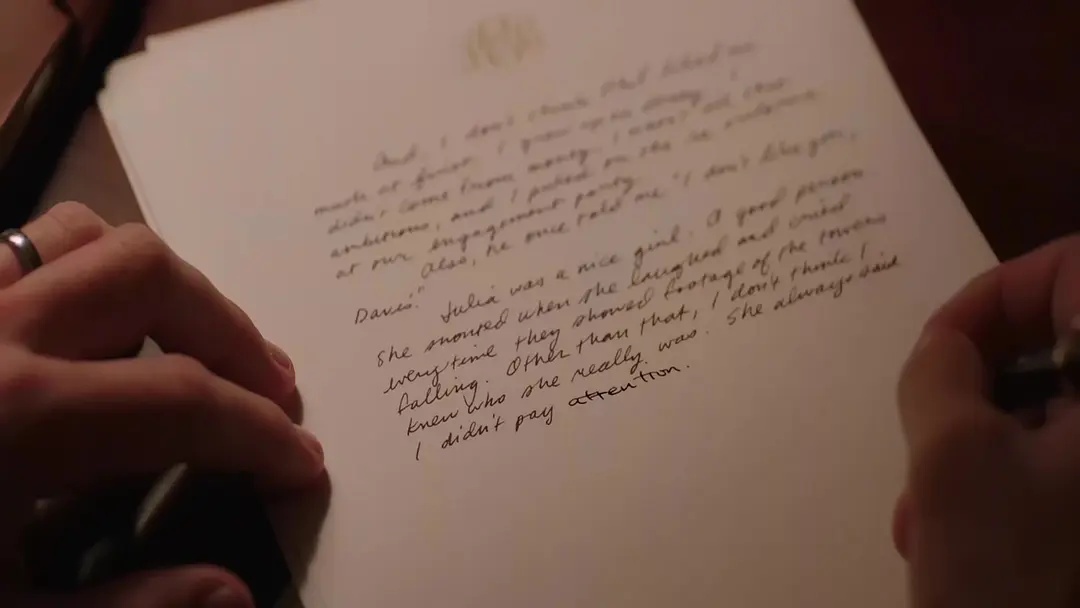 And, I don't think Phil liked me
much at first. I grew up in Jersey. I
didn't come from money. I wasn't all that
ambitious, and I puked on the ice sculpture
at our engagement party.
Also, he once told me "I don't like you,
Davis."
Julia was a nice girl. A good person
She snorted when she laughed and cried
everytime they showed footage of the towers
falling. Other than that, I don't think I
knew who she really was. She always said
I didn't pay attention.